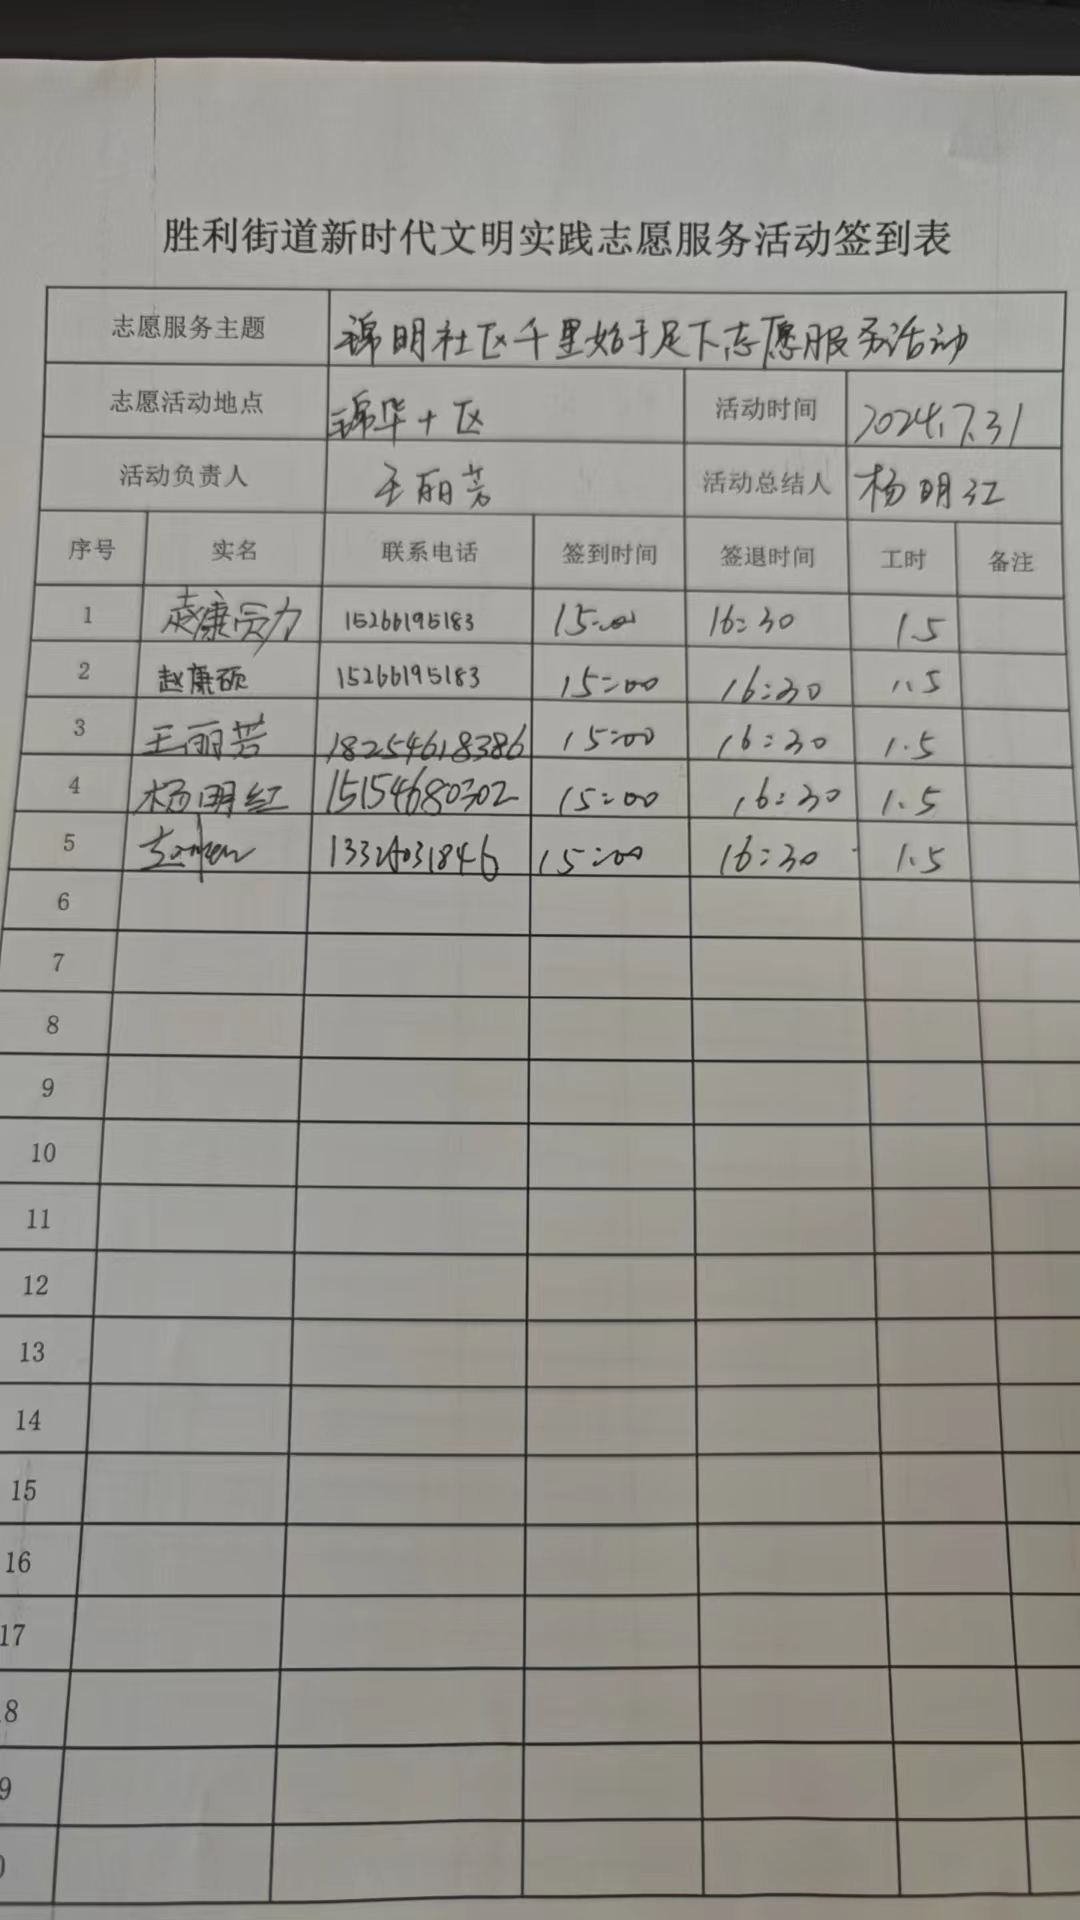 胜利街道新时代文明实践志愿服务活动签到表
志愿服务主题 锦明社区千里始于足下志愿服务活动
志愿活动地点 锦华十区 活动时间 2024.7.31
活动负责人 王丽芳 活动总结人 杨明红
序号 实名 联系电话 签到时间 签退时间 工时 备注
1 15266195183 15:00 16:30 1.5
2 赵康硕 15266195183 15:00 16:30 1.5
3 王丽芳 18254618386 15:00 16:30 1.5
4 杨明红 15154680302 15:00 16:30 1.5
5 15:00 16:30 1.5
6
7
8
9
10
11
12
13
14
15
16
17
8
9
0